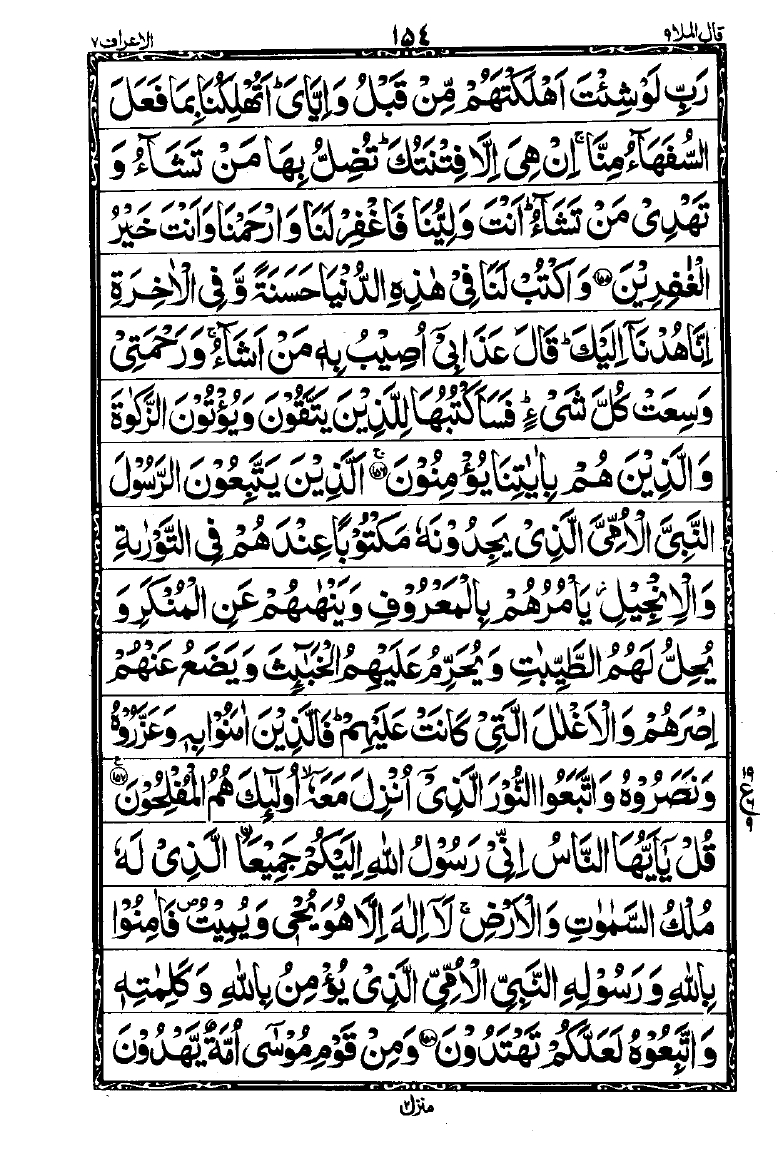 قال الملا ۹ ١٥٤ الاعراف ۷
رَبِّ لَوْ شِئْتَ اَهْلَكْتَهُمْ مِّنْ قَبْلُ وَ اِيَّايَ ؕ اَتُهْلِكُنَا بِمَا فَعَلَ
السُّفَهَآءُ مِنَّا ۚ اِنْ هِيَ اِلَّا فِتْنَتُكَ ؕ تُضِلُّ بِهَا مَنْ تَشَآءُ وَ
تَهْدِيْ مَنْ تَشَآءُ ؕ اَنْتَ وَلِيُّنَا فَاغْفِرْ لَنَا وَ ارْحَمْنَا وَ اَنْتَ خَيْرُ
الْغٰفِرِيْنَ ﴿۱۵۵﴾ وَ اكْتُبْ لَنَا فِيْ هٰذِهِ الدُّنْيَا حَسَنَةً وَّ فِي الْاٰخِرَةِ
اِنَّا هُدْنَاۤ اِلَيْكَ ؕ قَالَ عَذَابِيْۤ اُصِيْبُ بِهٖ مَنْ اَشَآءُ ۚ وَ رَحْمَتِيْ
وَسِعَتْ كُلَّ شَيْءٍ ؕ فَسَاَكْتُبُهَا لِلَّذِيْنَ يَتَّقُوْنَ وَ يُؤْتُوْنَ الزَّكٰوةَ
وَ الَّذِيْنَ هُمْ بِاٰيٰتِنَا يُؤْمِنُوْنَ ۚ﴿۱۵۶﴾ اَلَّذِيْنَ يَتَّبِعُوْنَ الرَّسُوْلَ
النَّبِيَّ الْاُمِّيَّ الَّذِيْ يَجِدُوْنَهٗ مَكْتُوْبًا عِنْدَهُمْ فِي التَّوْرٰىةِ
وَ الْاِنْجِيْلِ ؗ يَاْمُرُهُمْ بِالْمَعْرُوْفِ وَ يَنْهٰىهُمْ عَنِ الْمُنْكَرِ وَ
يُحِلُّ لَهُمُ الطَّيِّبٰتِ وَ يُحَرِّمُ عَلَيْهِمُ الْخَبٰٓئِثَ وَ يَضَعُ عَنْهُمْ
اِصْرَهُمْ وَ الْاَغْلٰلَ الَّتِيْ كَانَتْ عَلَيْهِمْ ؕ فَالَّذِيْنَ اٰمَنُوْا بِهٖ وَ عَزَّرُوْهُ
وَ نَصَرُوْهُ وَ اتَّبَعُوا النُّوْرَ الَّذِيْۤ اُنْزِلَ مَعَهٗۤ ۙ اُولٰٓئِكَ هُمُ الْمُفْلِحُوْنَ ﴿۱۵۷﴾ ع
۱۹ ع ۶ ۹
قُلْ يٰۤاَيُّهَا النَّاسُ اِنِّيْ رَسُوْلُ اللّٰهِ اِلَيْكُمْ جَمِيْعَا ۣالَّذِيْ لَهٗ
مُلْكُ السَّمٰوٰتِ وَ الْاَرْضِ ۚ لَاۤ اِلٰهَ اِلَّا هُوَ يُحْيٖ وَ يُمِيْتُ ۪ فَاٰمِنُوْا
بِاللّٰهِ وَ رَسُوْلِهِ النَّبِيِّ الْاُمِّيِّ الَّذِيْ يُؤْمِنُ بِاللّٰهِ وَ كَلِمٰتِهٖ
وَ اتَّبِعُوْهُ لَعَلَّكُمْ تَهْتَدُوْنَ ﴿۱۵۸﴾ وَ مِنْ قَوْمِ مُوْسٰۤى اُمَّةٌ يَّهْدُوْنَ
منزل ۲